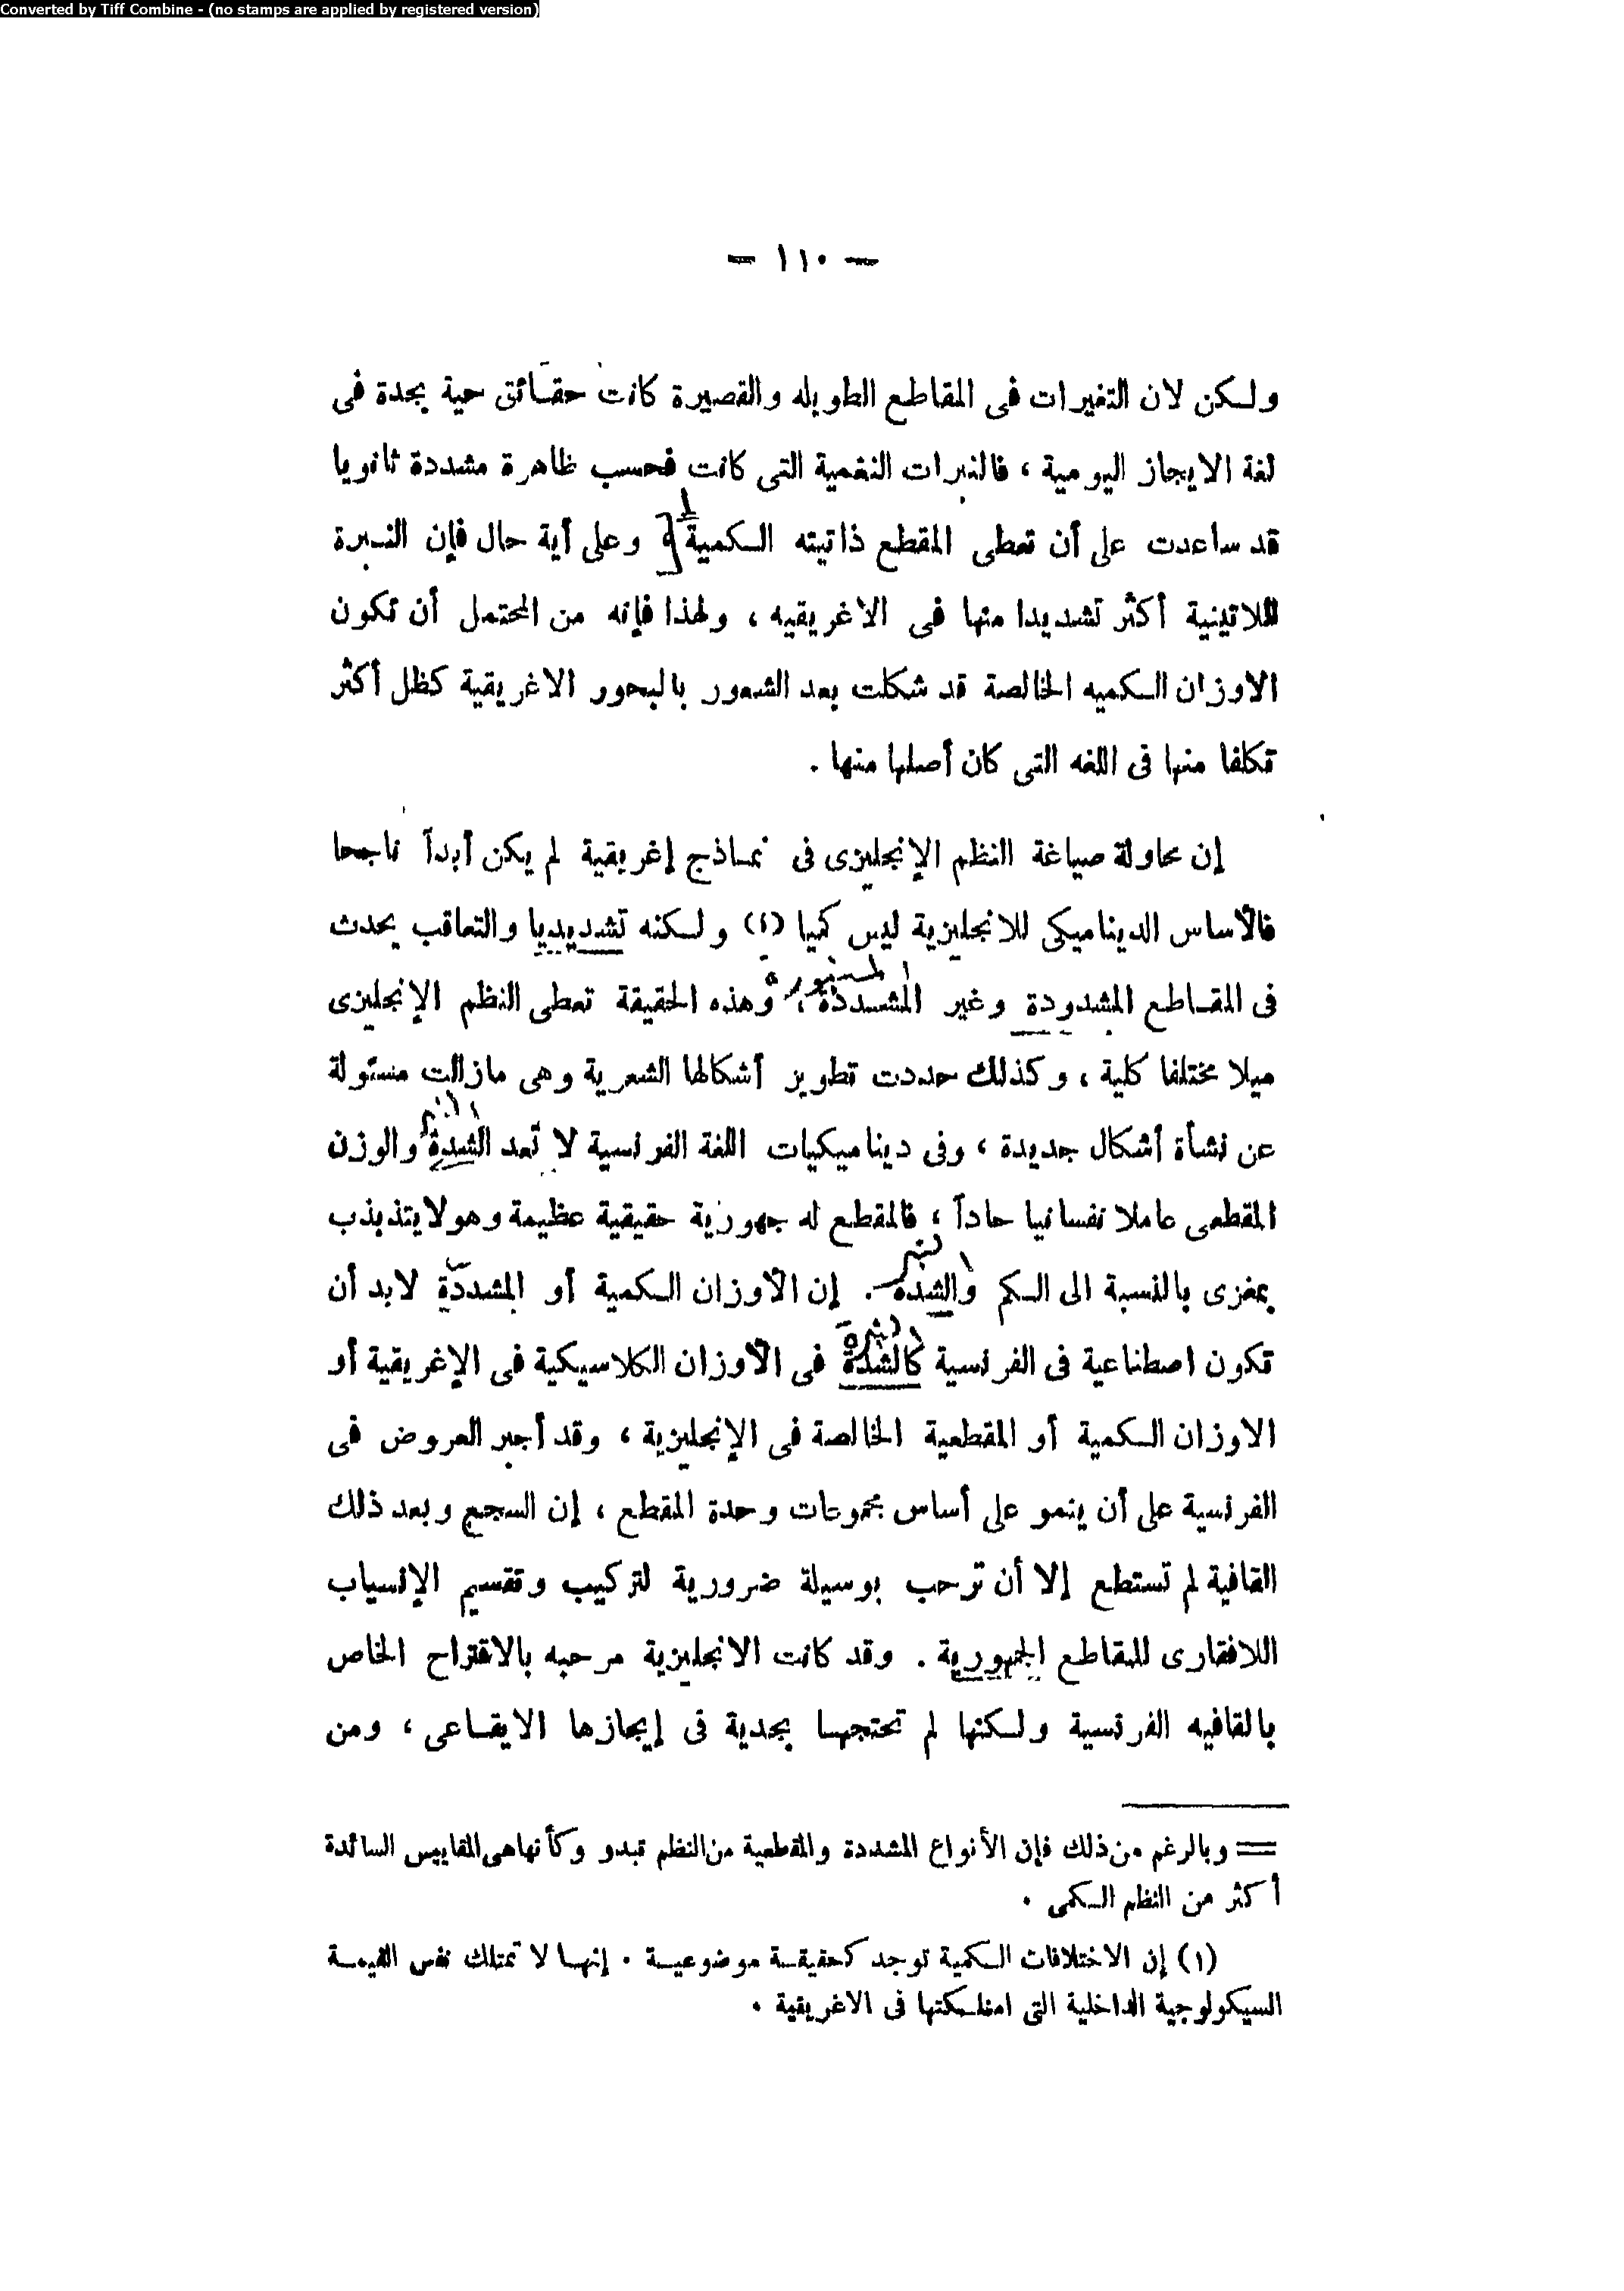 Converted by Tiff Combine - (no stamps are applied by registered version)
— ١١٠ —
ولكن لان التغيرات فى المقاطع الطويله والقصيرة كانت حقائق حية بجدة فى
لغة الايجاز اليومية ، فالنبرات النغمية التى كانت فحسب ظاهرة مشددة ثانويا
قد ساعدت على أن تعطى المقطع ذاتيته الكمية وعلى أية حال فإن النبرة
اللاتينية أكثر تشديدا منها فى الاغريقيه ، ولهذا فإنه من المحتمل أن تكون
الاوزان الكميه الخالصة قد شكلت بعد الشعور بالبحور الاغريقية كظل أكثر
تكلفا منها فى اللغه التى كان أصلها منها .
إن محاولة صياغة النظم الإنجليزى فى نماذج إغريقية لم يكن أبدآ ناجحا
فالأساس الديناميكى للانجليزية ليس كميا (١) ولكنه تشديديا والتعاقب يحدث
فى المقاطع المشدودة وغير المشددة ، وهذه الحقيقة تعطى النظم الإنجليزى
ميلا مختلفا كلية ، وكذلك حددت تطويز أشكالها الشعرية وهى مازالت مسئولة
عن نشأة أشكال جديدة ، وفى ديناميكيات اللغة الفرنسية لا تعد الشدة والوزن
المقطعى عاملا نفسانيا حادآ ، فالمقطع له جهورية حقيقية عظيمة وهو لا يتذبذب
بمغزى بالنسبة الى الكم والشدة . إن الأوزان الكمية أو المشددة لابد أن
تكون اصطناعية فى الفرنسية كالشدة فى الأوزان الكلاسيكية فى الإغريقية أو
الاوزان الكمية أو المقطعية الخالصة فى الإنجليزية ، وقد أجبر العروض فى
الفرنسية على أن ينمو على أساس مجموعات وحدة المقطع ، إن السجع وبعد ذلك
القافية لم تستطع إلا أن ترحب بوسيلة ضرورية لتركيب وتقسيم الإنسياب
اللافقارى للمقاطع الجهورية . وقد كانت الانجليزية مرحبه بالاقتراح الخاص
بالقافيه الفرنسية ولكنها لم تحتجها بجدية فى إيجازها الايقاعى ، ومن
= وبالرغم من ذلك فإن الأنواع المشددة والمقطعية من النظم تبدو وكأنها هى المقاييس السائدة
أكثر من النظم الكمى .
(١) إن الاختلافات الكمية توجد كحقيقة موضوعية . إنها لا تمتلك نفس القيمة
السيكولوجية الداخلية التى امتلكتها فى الاغريقية .